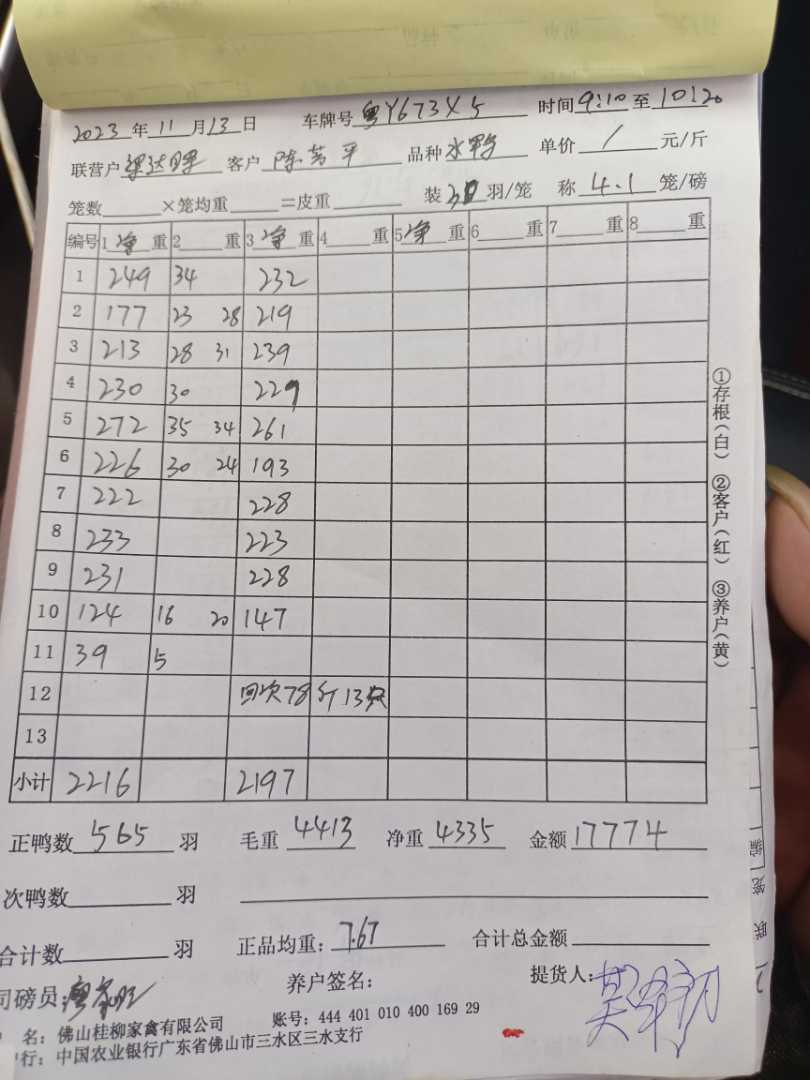 2023年11月13日 车牌号粤Y673X5 时间9:10至10:20
联营户 客户陈芳平 品种水鸭 单价/元/斤
笼数 ×笼均重 =皮重 装 羽/笼 称4.1笼/磅
编号 1净重 2 重 3净重 4 重 5净重 6 重 7 重 8 重
1 249 34 232
2 177 23 28 219
3 213 28 31 239
4 230 30 229
5 272 35 34 261
6 226 30 24 193
7 222 228
8 233 223
9 231 228
10 124 16 20 147
11 39 5
12 回次78斤13只
13
小计 2216 2197
正鸭数565羽 毛重4413 净重4335 金额17774
次鸭数 羽
合计数 羽 正品均重:7.67 合计总金额
司磅员: 养户签名: 提货人:
名:佛山桂柳家禽有限公司 账号:444 401 010 400 169 29
行:中国农业银行广东省佛山市三水区三水支行
①存根(白) ②客户(红) ③养户(黄)